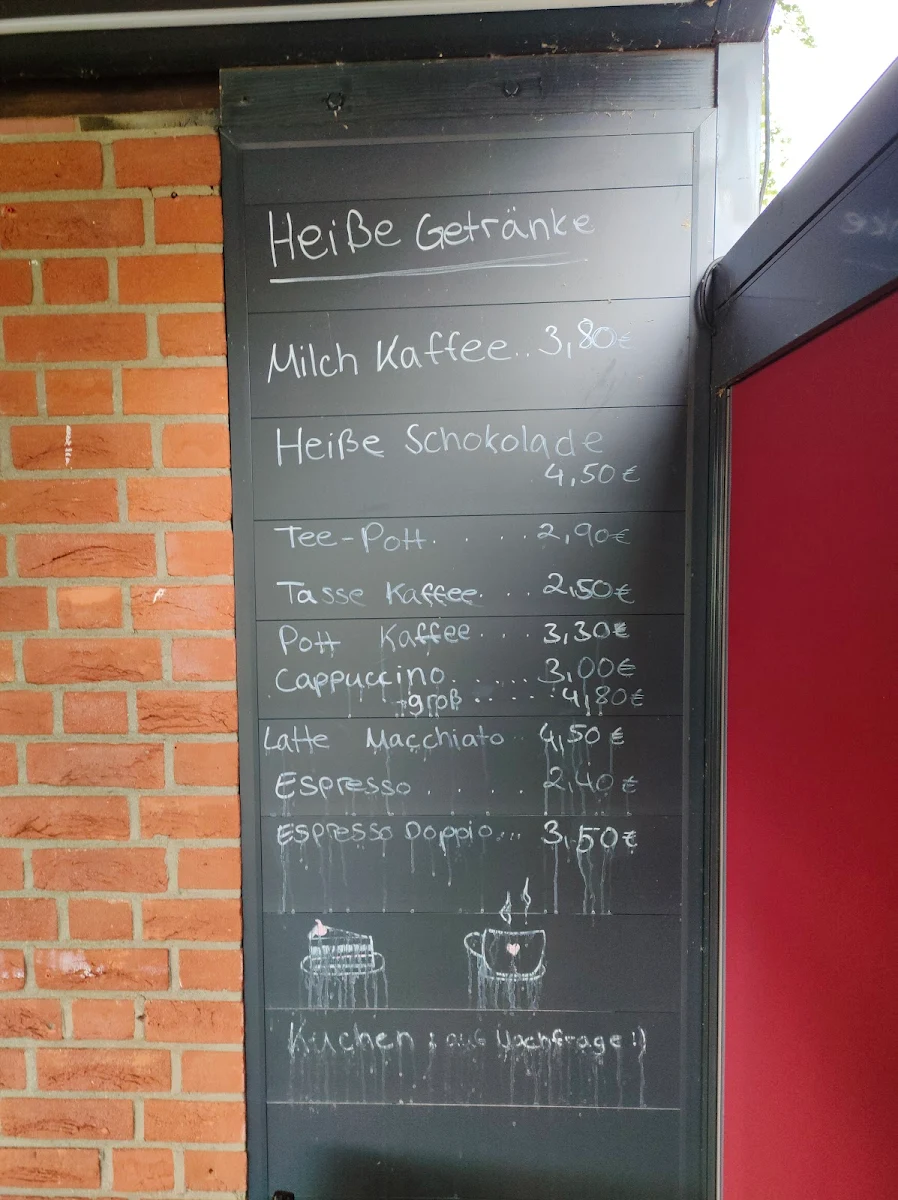 Heiße Getränke
Milch Kaffee.. 3,80€
Heiße Schokolade
4,50€
Tee-Pott. . . . . 2,90€
Tasse Kaffee. . . . 2,50€
Pott Kaffee . . . . 3,30€
Cappuccino. ..... 3,00€
groß ..... 4,80€
Latte Macchiato .. 4,50€
Espresso . . . . . 2,40€
Espresso Doppio... 3,50€
Kuchen : auf Nachfrage :)